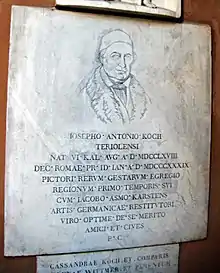 IOSEPHO · ANTONIO · KOCH
TERIOLENSI
NAT · VI · KAL · AVG · A · D · MDCCLXVIII
DEC · ROMAE · PR · ID · IAN · A · D · MDCCCXXXIX
PICTORI · RERVM · GESTARVM · EGREGIO
REGIONVM · PRIMO · TEMPORIS · SVI
CVM · IACOBO · ASMO · KARSTENS
ARTIS · GERMANICAE · RESTITVTORI
VIRO · OPTIME · DE · SE · MERITO
AMICI · ET · CIVES
P · C
CASSANDRAE · KOCH · ET · CONIVGIS